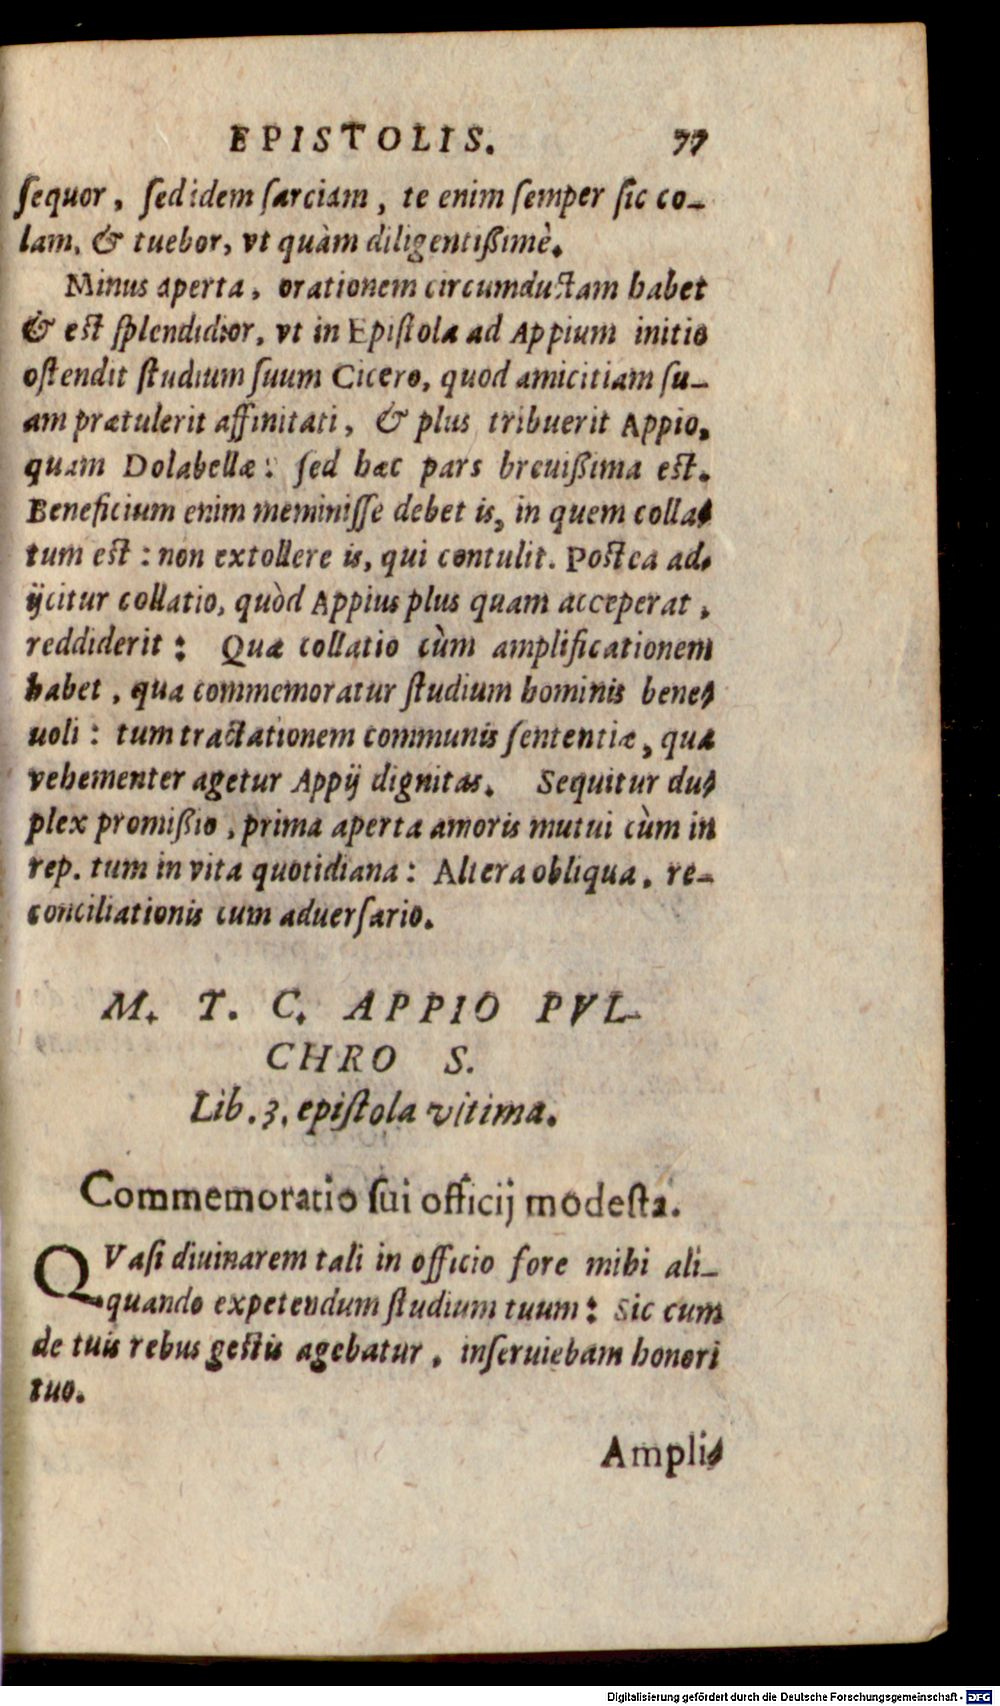 EPISTOLIS. 77
ſequor, ſed idem ſarciam, te enim ſemper ſic co-
lam, & tuebor, vt quàm diligentißimè.
Minus aperta, orationem circumductam habet
& est ſplendidior, vt in Epiſtola ad Appium initio
oſtendit ſtudium ſuum Cicero, quod amicitiam ſu-
am prætulerit affinitati, & plus tribuerit Appio,
quam Dolabellæ: ſed hæc pars breuißima est.
Beneficium enim meminiſſe debet is, in quem colla-
tum est: non extollere is, qui contulit. Postea ad-
ijcitur collatio, quòd Appius plus quam acceperat,
reddiderit: Quæ collatio cùm amplificationem
habet, qua commemoratur ſtudium hominis bene-
uoli: tum tractationem communis ſententiæ, qua
vehementer agetur Appij dignitas. Sequitur du-
plex promißio, prima aperta amoris mutui cùm in
rep. tum in vita quotidiana: Altera obliqua, re-
conciliationis cum aduerſario.
M. T. C. APPIO PVL-
CHRO S.
Lib. 3. epiſtola vltima.
Commemoratio ſui officij modeſta.
QVaſi diuinarem tali in officio fore mihi ali-
quando expetendum ſtudium tuum: Sic cum
de tuis rebus gestis agebatur, inſeruiebam honori
tuo.
Ampli-
Digitalisierung gefördert durch die Deutsche Forschungsgemeinschaft - DFG